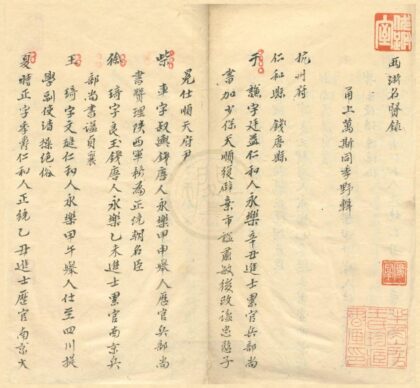 两浙名賢錄
甬上萬斯同季野輯
杭州府
仁和縣 錢唐縣
于謙字廷益仁和人永樂辛丑進士累官兵部尚
書加少保天順復辟棄市謚肅愍後改謚忠肅子
冕仕順天府尹
柴車字叔輿錢唐人永樂甲申舉人歷官兵部尚
書贊理陝西軍務為正統朝名臣
徐琦字良玉錢唐人永樂乙未進士累官南京兵
部尚書謚貞襄
王琦字文進仁和人永樂甲午舉人仕至四川提
學副使清操絕俗
夏時正字季爵仁和人正統乙丑進士歷官南京大